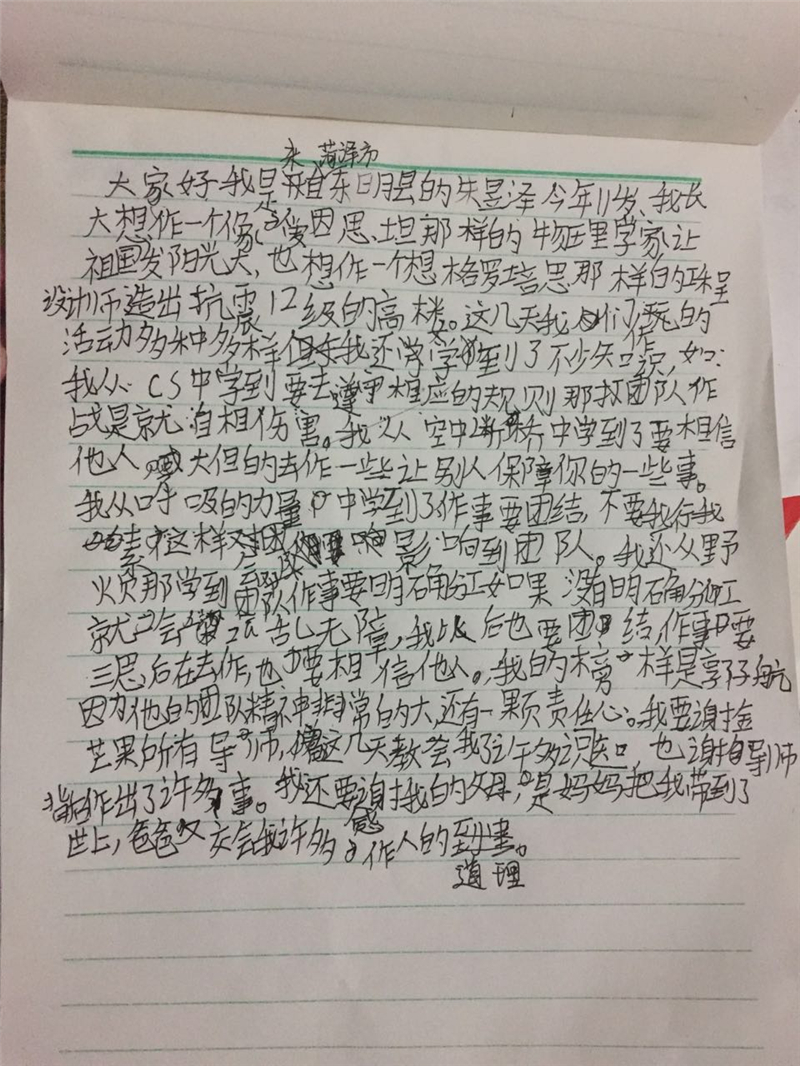 来 菏泽市
大家好我是来自东明县的朱昱泽今年11岁、我长
大想作一个像爱因思、坦那样的物理学家让
祖国发阳光大,也想作一个想格罗培思那样的工程
设计师造出抗震12级的高楼。这几天我们玩的
活动多种多样但我还学到了不少知识,如:
我从 CS中学到要去遵守相应的规则那扠团队作
战是就自相伤害。我从空中断桥中学到了要相信
他人 大但的去作一些让别人保障你的一些事。
我从呼吸的力量中学到了作事要团结,不要我行我
素 这样 影响到团队。我还从野
炊那学到团队作事要明确分工如果没有明确分工
就会 乱无障,我以后也要团结作事要
三思后在去作,也要相信他人。我的榜样是郭子航
因为他的团队精神非常的大,还有一颗责任心。我要谢
芒果所有导师,这几天教会我了许多识,也谢导师
作出了许多事。我还要谢我的父母,是妈妈把我带到了
世上,爸爸又交会我许多作人的
道理